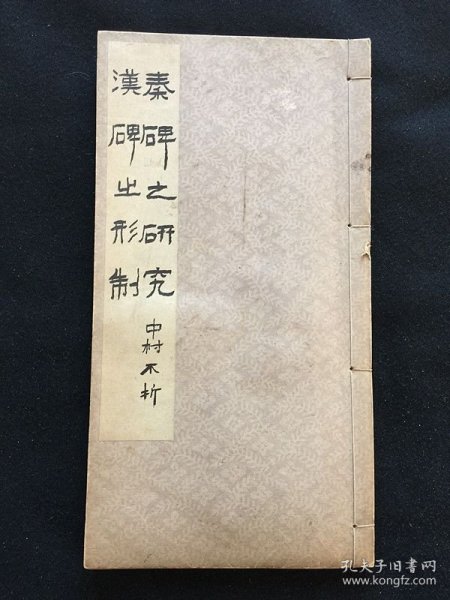 秦碑之研究
漢碑之形制
中村不折
孔夫子旧书网
www.kongfz.com